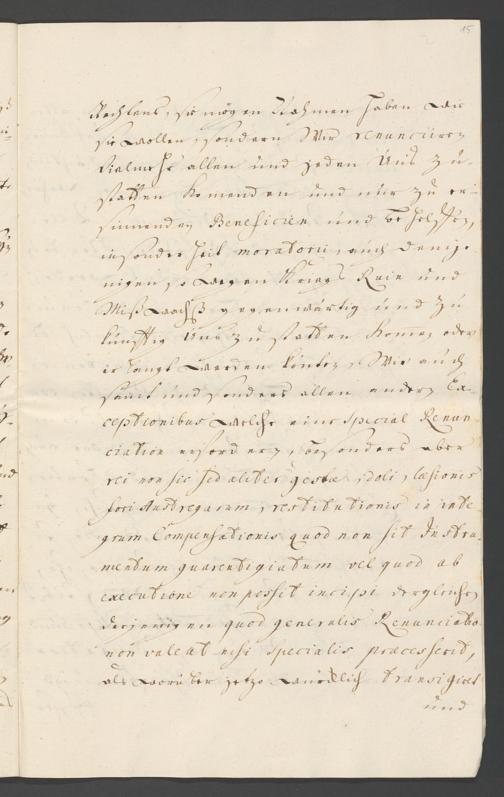 15
Rechtens, sie mögen Nahmen haben wie
sie wollen, sondern Wir renunciiren
vielmehr allen und jeden Uns zu-
statten komenden und nur zu er-
sinnenden Beneficien und behelffen,
insonderheit moratorii, auch denje-
nigen, so wegen Kriegs Ruin und
Mißwachß gegenwärtig und zu
künfftig Uns zu statten komen oder
erlangt werden könten, Wie auch
samt und sonders allen andern Ex-
ceptionibus welche eine special Renun-
ciation erfordern, besonders aber
rei non sic sed aliter gestae, doli, laesionis
fori Austregarum, restitutionis in inte-
grum Compensationis quod non sit Instru-
mentum guarentigiatum vel quod ab
executione non possit incipi dergleichen
derjenigen quod generalis Renunciatio
non valeat nisi specialis praecesserit,
als worüber jetzo würcklich transigiret
und